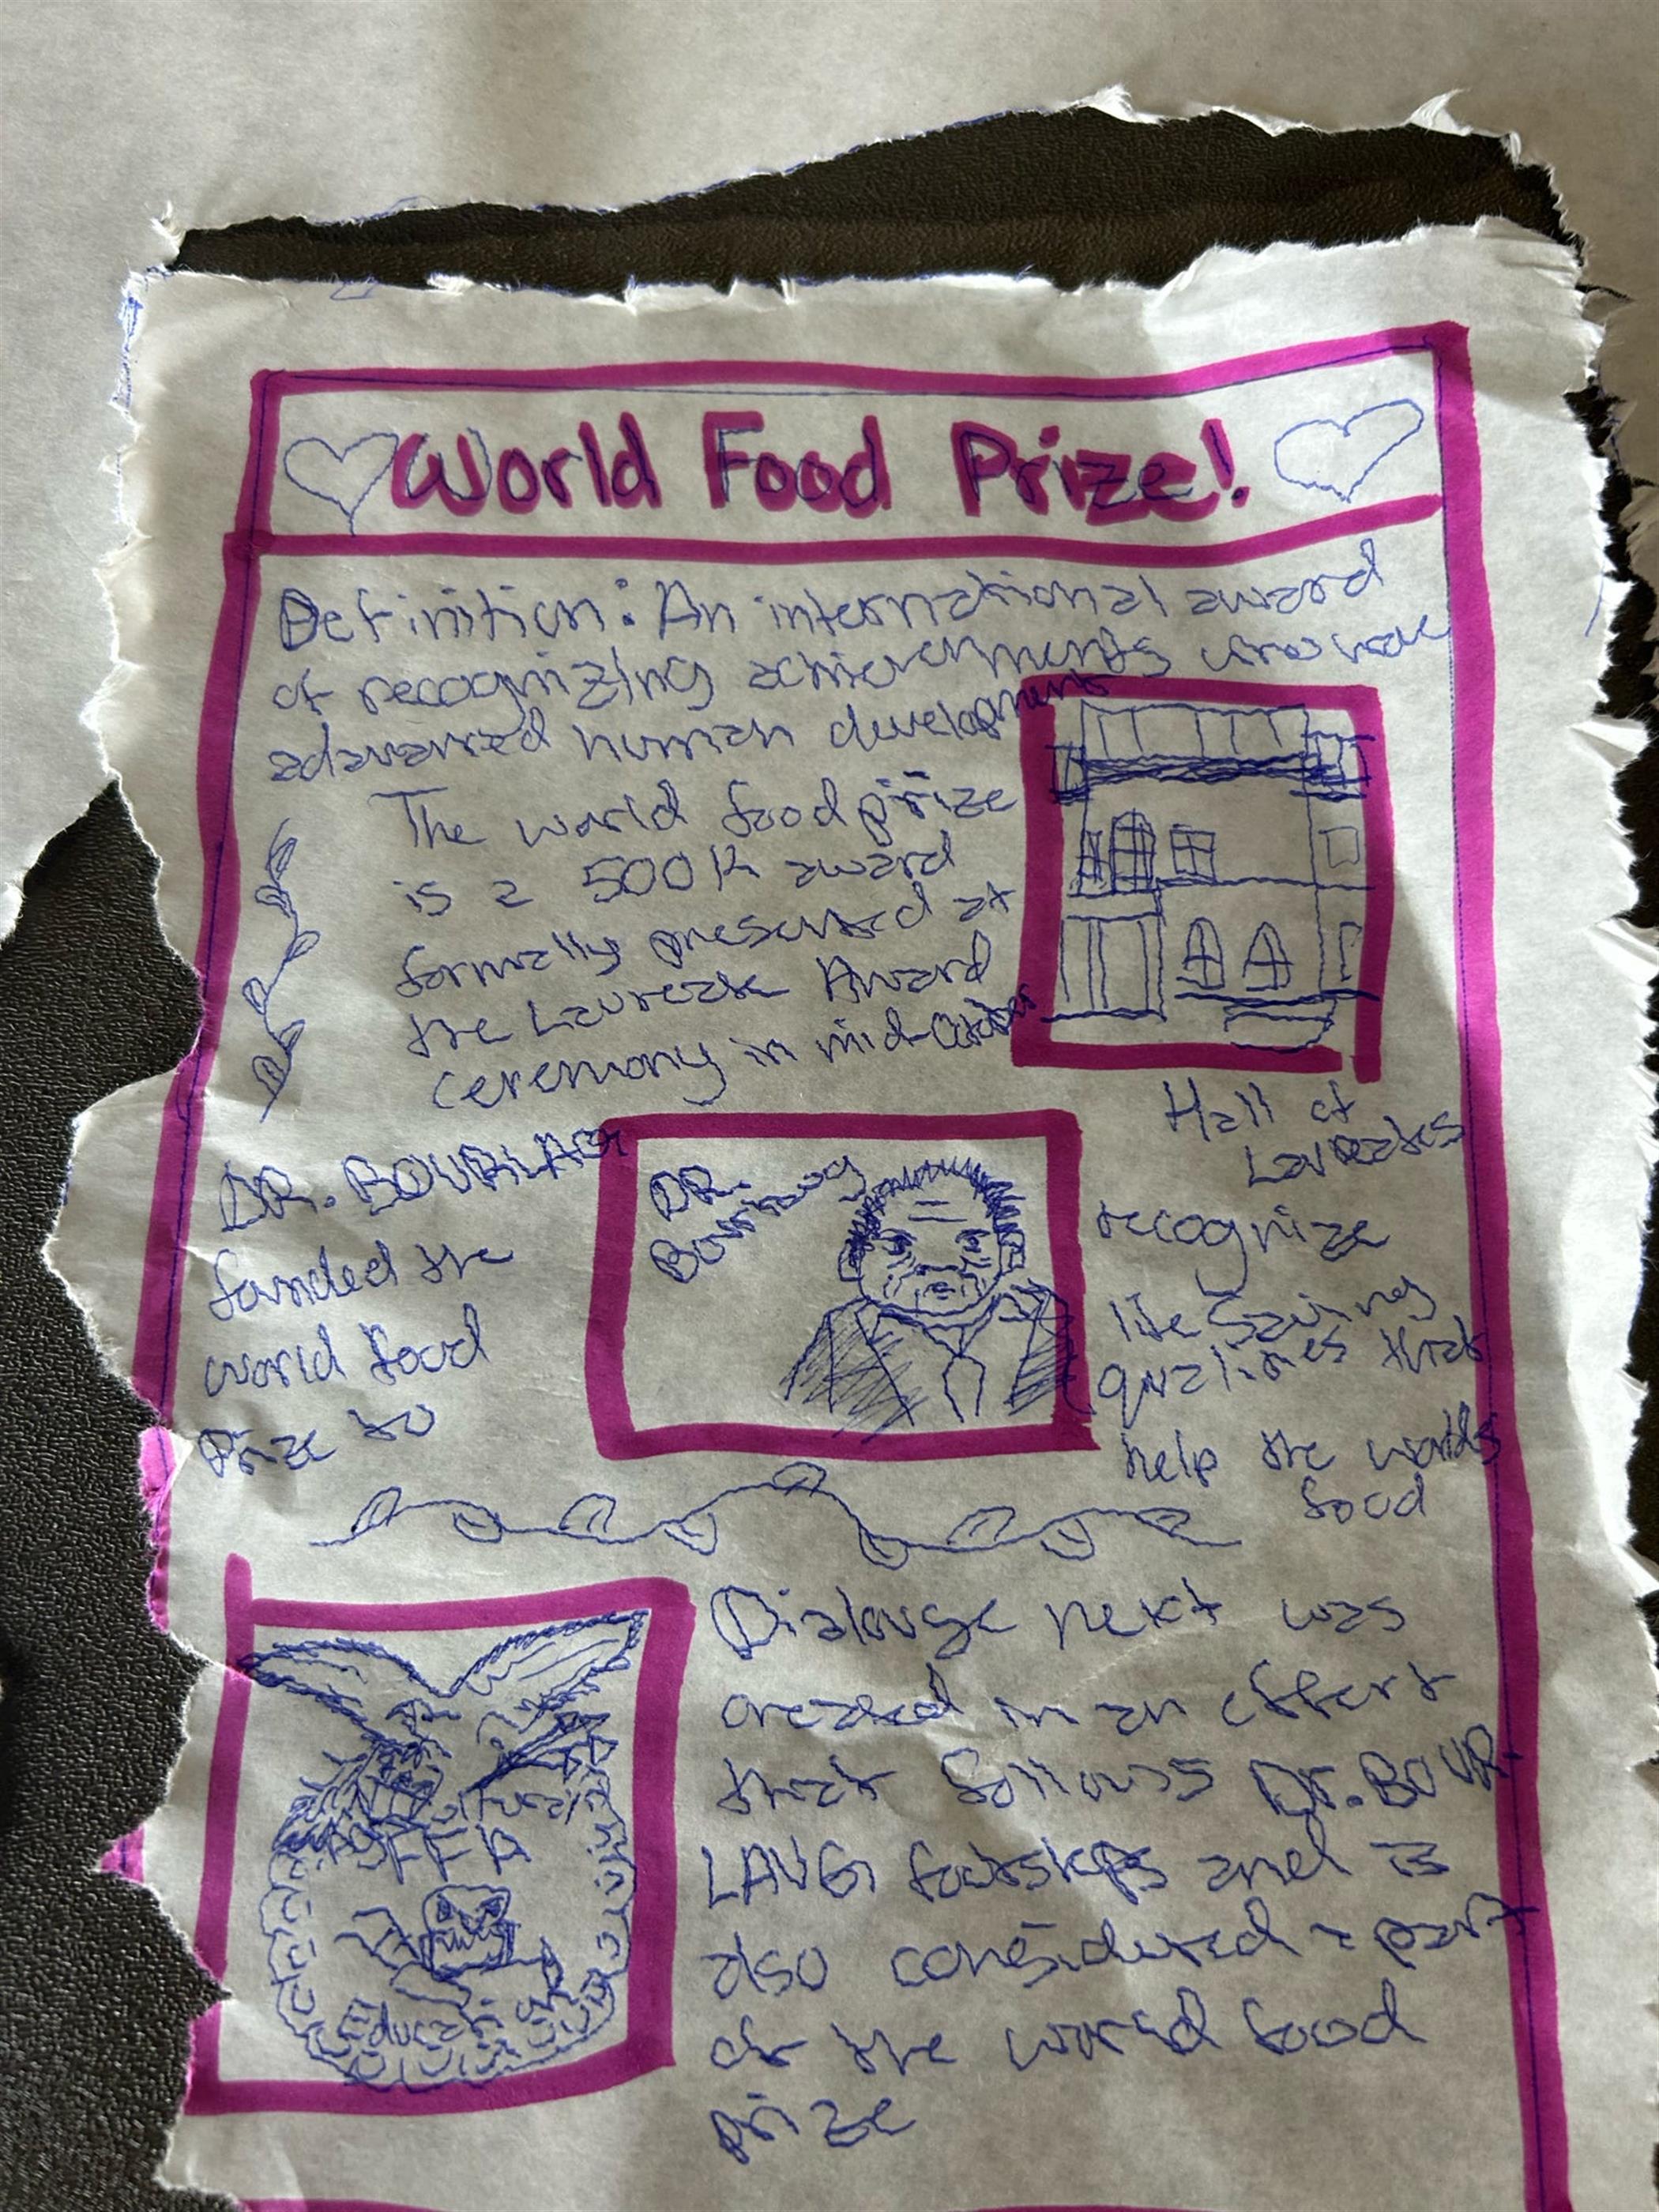 World Food Prize!
Definition: An international award
of recognizing achievements who have
adavanced human developments
The world food prize
is a 500K award
formally presented at
the Laureate Award
ceremony in mid-October
Hall of
Laureates
DR. BOURLAG
founded the
world food
Prize to
DR.
Bourlaug
recognize
life saving
qualities that
help the worlds
food
Dialouge next was
created in an effort
that follows Dr. BOUR-
LAUG footsteps and is
also considered a part
of the world food
prize
FFA
Educati